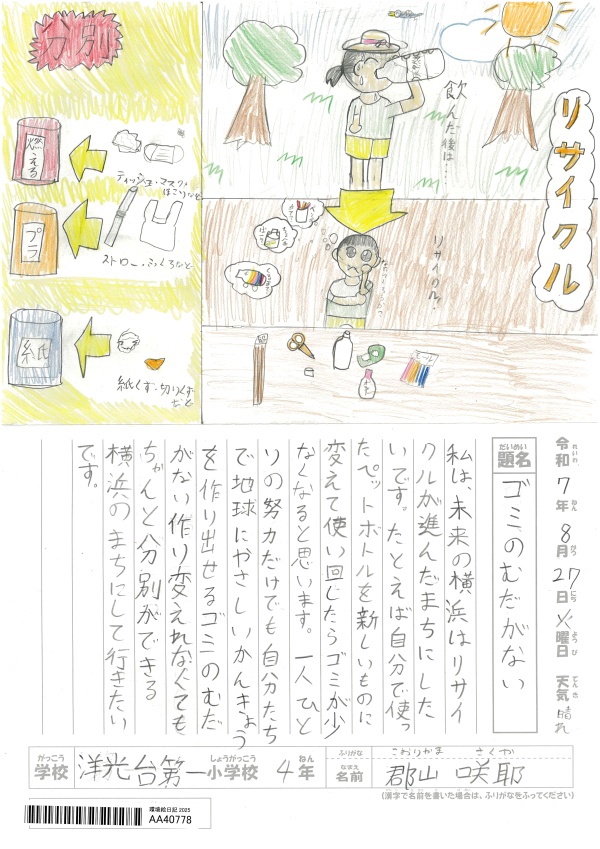 分別
燃える
ティッシュ・マスク・
ほこりなど
プラ
ストロー・ふくろなど
紙
紙くず・切りくず
など
飲んだ後は…
リサイクル
リサイクル!
モール
令和7年8月27日火曜日 天気 晴れ
れいわ ねん がつ にち ようび てんき
だいめい
題名 ゴミのむだがない
私は、未来の横浜はリサイ
クルが進んだまちにした
いです。たとえば自分で使っ
たペットボトルを新しいものに
変えて使い回したらゴミが少
なくなると思います。一人ひと
りの努力だけでも自分たち
で地球にやさしいかんきょう
を作り出せるゴミのむだ
がない作り変えれなくても
ちゃんと分別ができる
横浜のまちにして行きたい
です。
がっこう しょうがっこう ねん
学校 洋光台第一小学校 4年
ふりがな こおりやま さくや
なまえ
名前 郡山 咲耶
(漢字で名前を書いた場合は、ふりがなをふってください)
環境絵日記 2025
AA40778